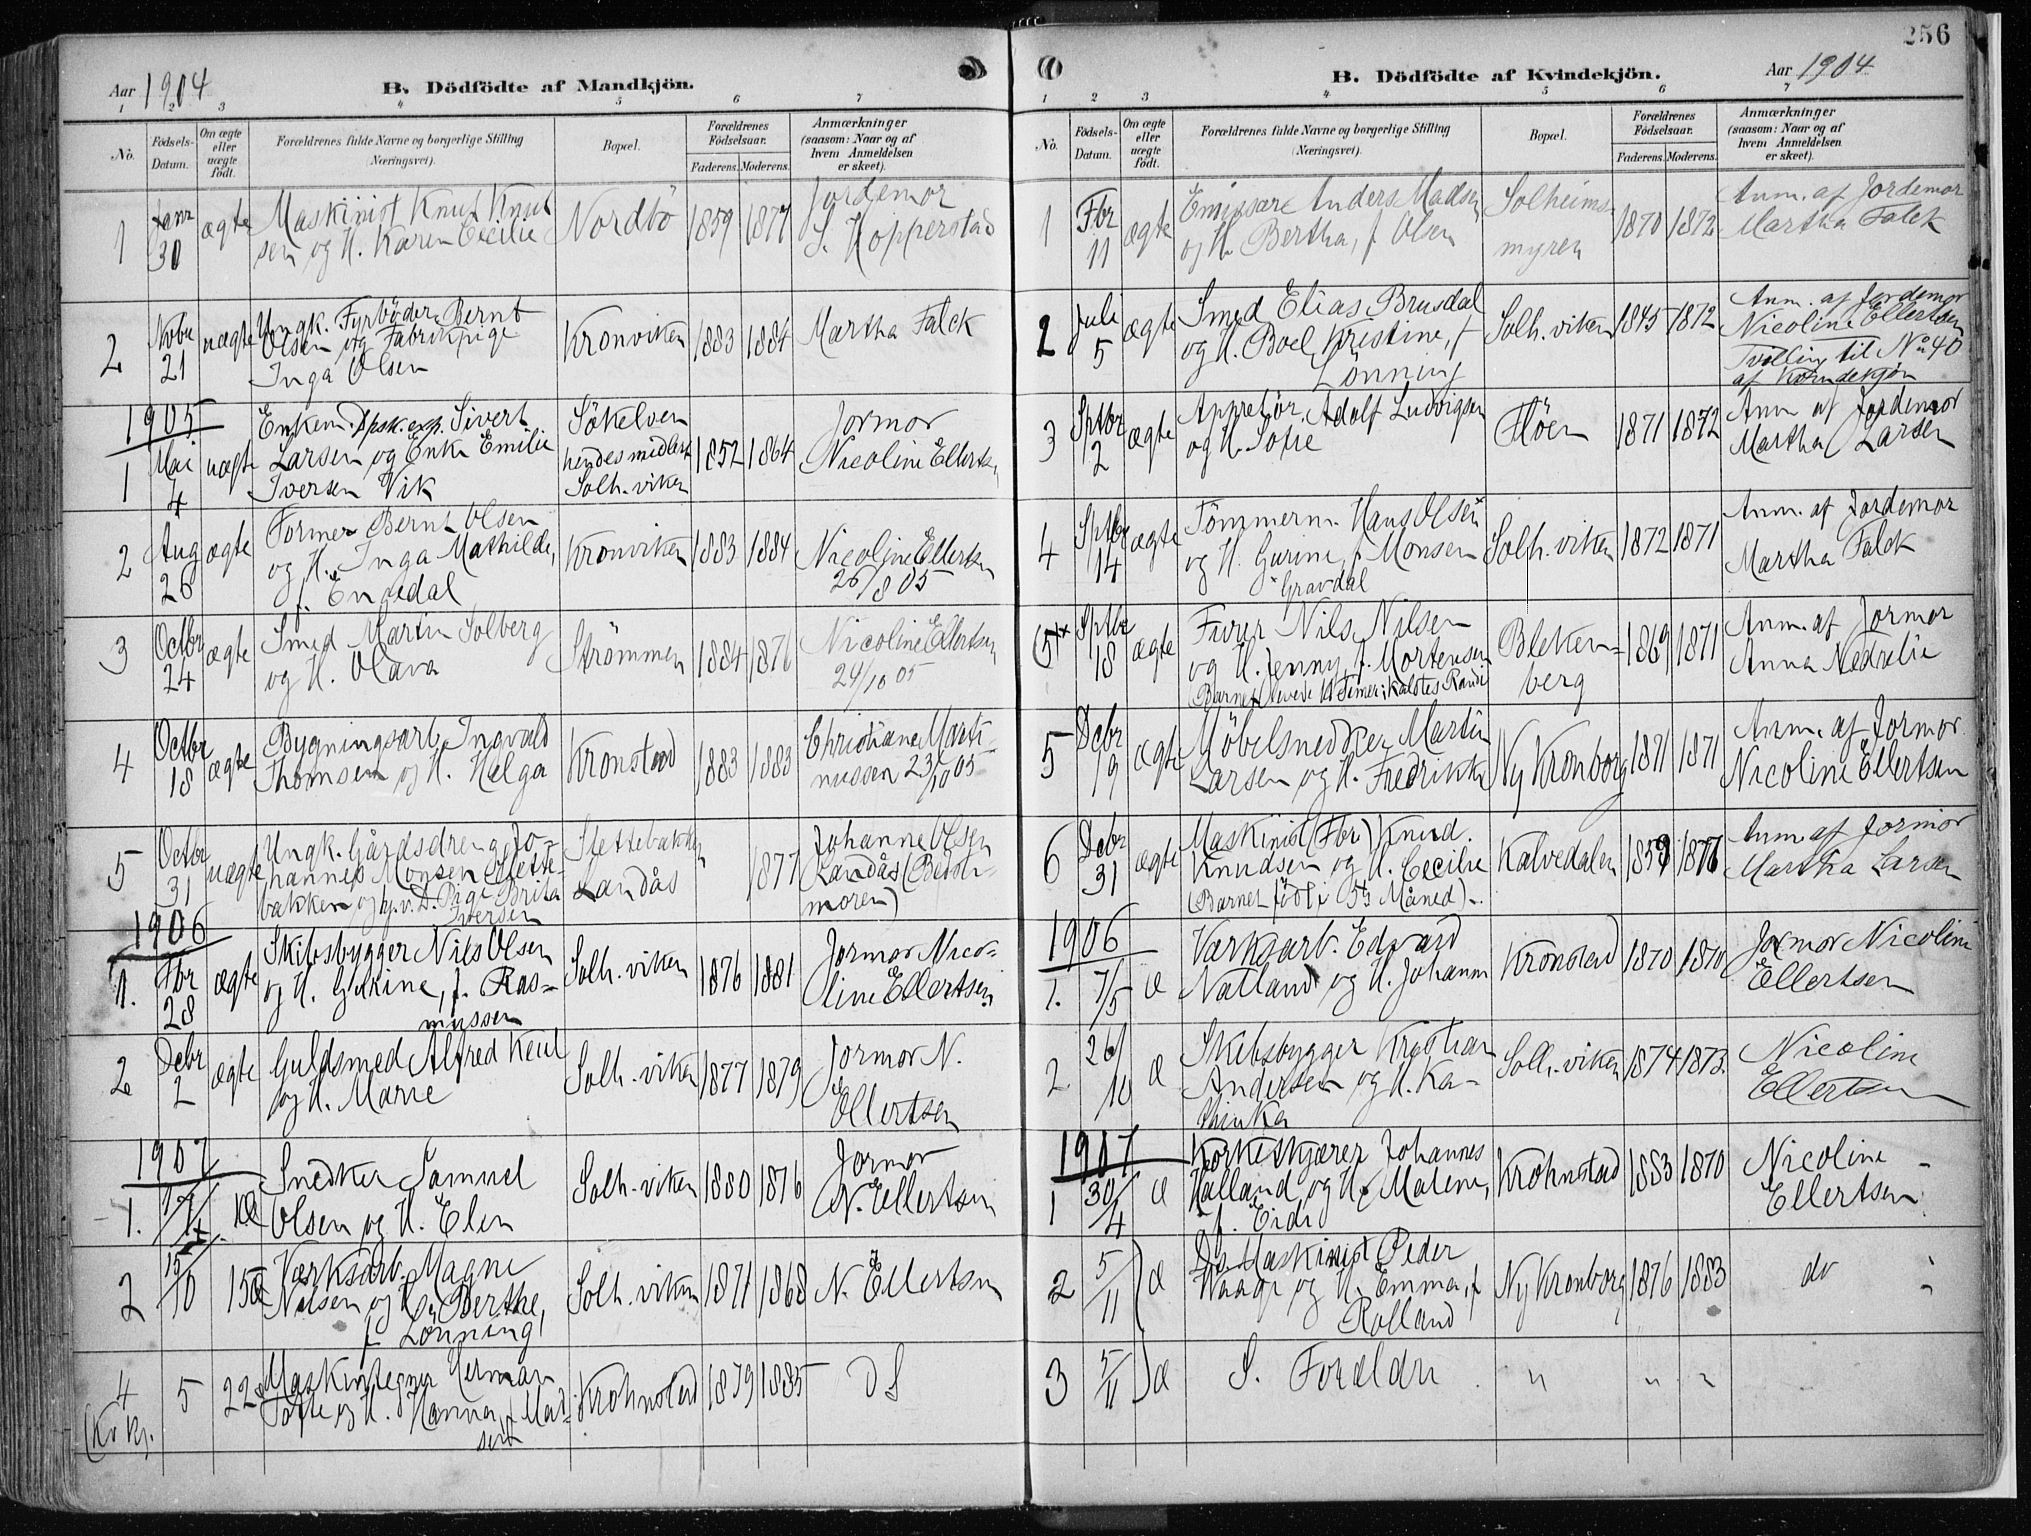 Aar 1904
B. Dödfödte af Mandkjön.
1 2 3 4 5 6 7
No.
Födsels-Datum.
Om ægte eller uægte født.
Forældrenes fulde Navne og borgerlige Stilling (Næringsvei).
Bopæl.
Forældrenes Födselsaar.
Faderens. Moderens.
Anmærkninger (saasom: Naar og af hvem Anmeldelsen er skeet).
1 Janr 30 ægte Maskinist Knut Knut
sen og H. Karen Cecilie Nordbö 1859 1877 Jordemor
S. Hopperstad
2 Novbr 21 uægte Ungk. Fyrböder Bernt
Olsen og Fabrikpige
Inga Olsen Kronviken 1883 1884 Martha Falck
1905
1 Mai 4 uægte Enkem. Sivert
Larsen og Enke Emilie
Iversen Vik Sökelven
hendes
Solh.viken 1852 1864 Jormor
Nicoline Ellertsen
2 Aug 26 ægte Former Bernt Olsen
og H. Inga Mathilde,
f. Engedal Kronviken 1883 1884 Nicoline Ellertsen
26/8 05
3 Octbr 24 ægte Smed Martin Solberg
og H. Olava Strömmen 1884 1876 Nicoline Ellertsen
24/10 05
4 Octbr 18 ægte Bygningsarb. Ingvald
Thomsen og H. Helga Kronstad 1883 1883 Christiane Marti-
nussen 23/10 05
5 Octbr 31 uægte Ungk. Gårdsdreng Jo-
hannes Monsen Slette-
bakken og Pige Brita
Iversen Slettebakken
Landås 1877 Johanne Olsen
Landås (Bedste-
moren)
1906
1. Fbr 28 ægte Skibsbygger Nils Olsen
og H. f. Ras-
mussen Solh.viken 1876 1881 Jormor Nico-
line Ellertsen
2 Debr 2 ægte Guldsmed Alfred
og H. Marie Solh.viken 1877 1879 Jormor N.
Ellertsen
1907
1. Snedker Samuel
Olsen og H. Elen Solh.viken 1880 1876 Jormor
N. Ellertsen
2 15/10 Værksarb. Magne
Nilsen og H. Berthe,
f. Lönning Solh.viken 1871 1868 N. Ellertsen
4 5 Maskintegner Herman
og H. Hanna, f. Mad-
sen Krohnstad 1879 1885 DS
(Kv kj.
256
B. Dödfödte af Kvindekjön.
Aar 1904
1 2 3 4 5 6 7
No.
Födsels-Datum.
Om ægte eller uægte födt.
Forældrenes fulde Navne og borgerlige Stilling (Næringsvei).
Bopæl.
Forældrenes Födselsaar.
Faderens. Moderens.
Anmærkninger (saasom: Naar og af hvem Anmeldelsen er skeet).
1 Fbr 11 ægte Emissær Anders Madsen
og H. Bertha, f. Olsen Solheims-
myren 1870 1872 Anm. af Jordemor
Martha Falck
2 Juli 5 ægte Smed Elias Brusdal
og H. Boel Kristine, f.
Lönning Solh.viken 1845 1872 Anm. af Jordemor
Nicoline Ellertsen
Tvilling til No 40
af Kvindekjön
3 Sptbr 2 ægte Appretör Adolf Ludvigsen
og H. Sofie Flöen 1871 1872 Anm af Jordemor
Martha Larsen
4 Sptbr 14 ægte Tömmerm. Hans Olsen
og H. Gurine, f. Monsen
Gravdal Solh.viken 1872 1871 Anm. af Jordemor
Martha Falck
5 Sptbr 18 ægte Furer Nils Nilsen
og H. Jenny, f. Mortensen
Barnet levede Bleken-
berg 1869 1871 Anm. af Jormor
Anna Nedrelie
5 Debr 19 ægte Möbelsnedker Martin
Larsen og H. Fredrikke Ny Kronborg 1871 1871 Anm. af Jormor
Nicoline Ellertsen
6 Debr 31 ægte Maskinist (Fbr) Knud
Knudsen og H. Cecilie
(Barnet födt i 5te Måned). Kalvedalen 1859 1877 Anm. af Jormor
Martha Larsen
1906
1. 7/5 Æ Værksarb. Edvard
Natland og H. Johanne Kronstad 1870 1870 Jormor Nicoline
Ellertsen
2 26/10 Æ Skibsbygger Kristian
Andersen og H. Ka-
thinka Solh.viken 1874 1873. Nicoline
Ellertsen
1907
1 30/4 Æ Korkeskjærer Johannes
Halland og H. Malene,
f. Eide Krohnstad 1883 1870 Nicoline
Ellertsen
2 5/11 Æ Ds Maskinist Peder
Waage og H. Emma, f.
Rolland Ny Kronborg 1876 1883 do
3 5/11 Æ S. Forældre " " "